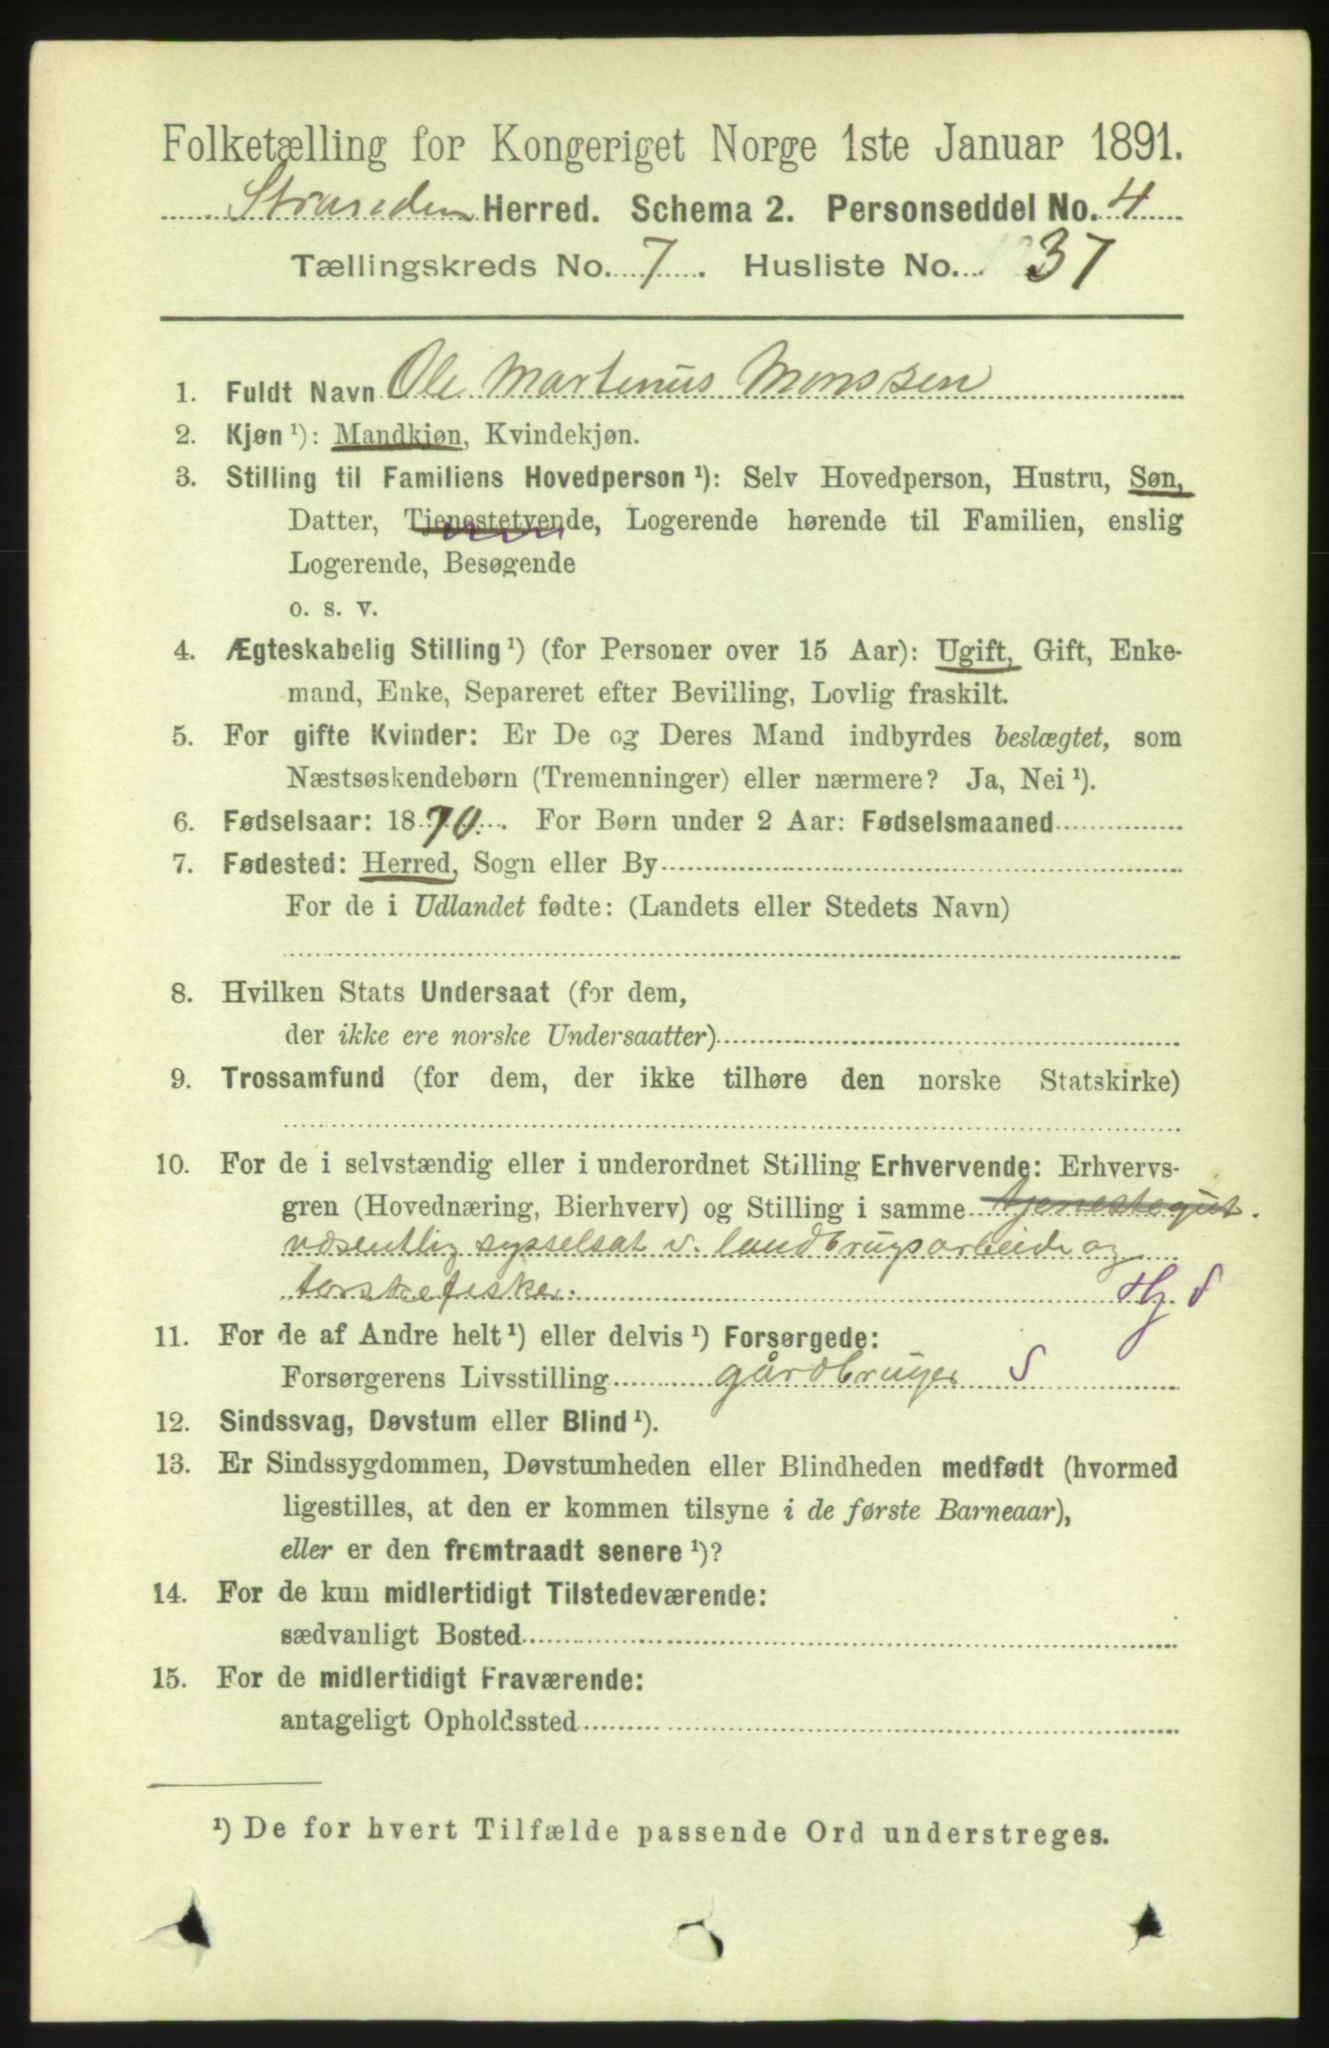 Folketælling for Kongeriget Norge 1ste Januar 1891.
Herred. Schema 2. Personseddel No. 4
Tællingskreds No. 7. Husliste No. 37
1. Fuldt Navn Ole Martinus Monssen
2. Kjøn ¹): Mandkjøn, Kvindekjøn.
3. Stilling til Familiens Hovedperson ¹): Selv Hovedperson, Hustru, Søn,
Datter, Tjenestetyende, Logerende hørende til Familien, enslig
Logerende, Besøgende
o. s. v.
4. Ægteskabelig Stilling ¹) (for Personer over 15 Aar): Ugift, Gift, Enke-
mand, Enke, Separeret efter Bevilling, Lovlig fraskilt.
5. For gifte Kvinder: Er De og Deres Mand indbyrdes beslægtet, som
Næstsøskendebørn (Tremenninger) eller nærmere? Ja, Nei ¹).
6. Fødselsaar: 1870. For Børn under 2 Aar: Fødselsmaaned
7. Fødested: Herred, Sogn eller By
For de i Udlandet fødte: (Landets eller Stedets Navn)
8. Hvilken Stats Undersaat (for dem,
der ikke ere norske Undersaatter)
9. Trossamfund (for dem, der ikke tilhøre den norske Statskirke)
10. For de i selvstændig eller i underordnet Stilling Erhvervende: Erhvervs-
gren (Hovednæring, Bierhverv) og Stilling i samme tjenestegut.
væsentlig sysselsat v. landbrugsarbeide og
torskefiske. Hj. S
11. For de af Andre helt ¹) eller delvis ¹) Forsørgede:
Forsørgerens Livsstilling gårdbruger S
12. Sindssvag, Døvstum eller Blind ¹).
13. Er Sindssygdommen, Døvstumheden eller Blindheden medfødt (hvormed
ligestilles, at den er kommen tilsyne i de første Barneaar),
eller er den fremtraadt senere ¹)?
14. For de kun midlertidigt Tilstedeværende:
sædvanligt Bosted
15. For de midlertidigt Fraværende:
antageligt Opholdssted
¹) De for hvert Tilfælde passende Ord understreges.